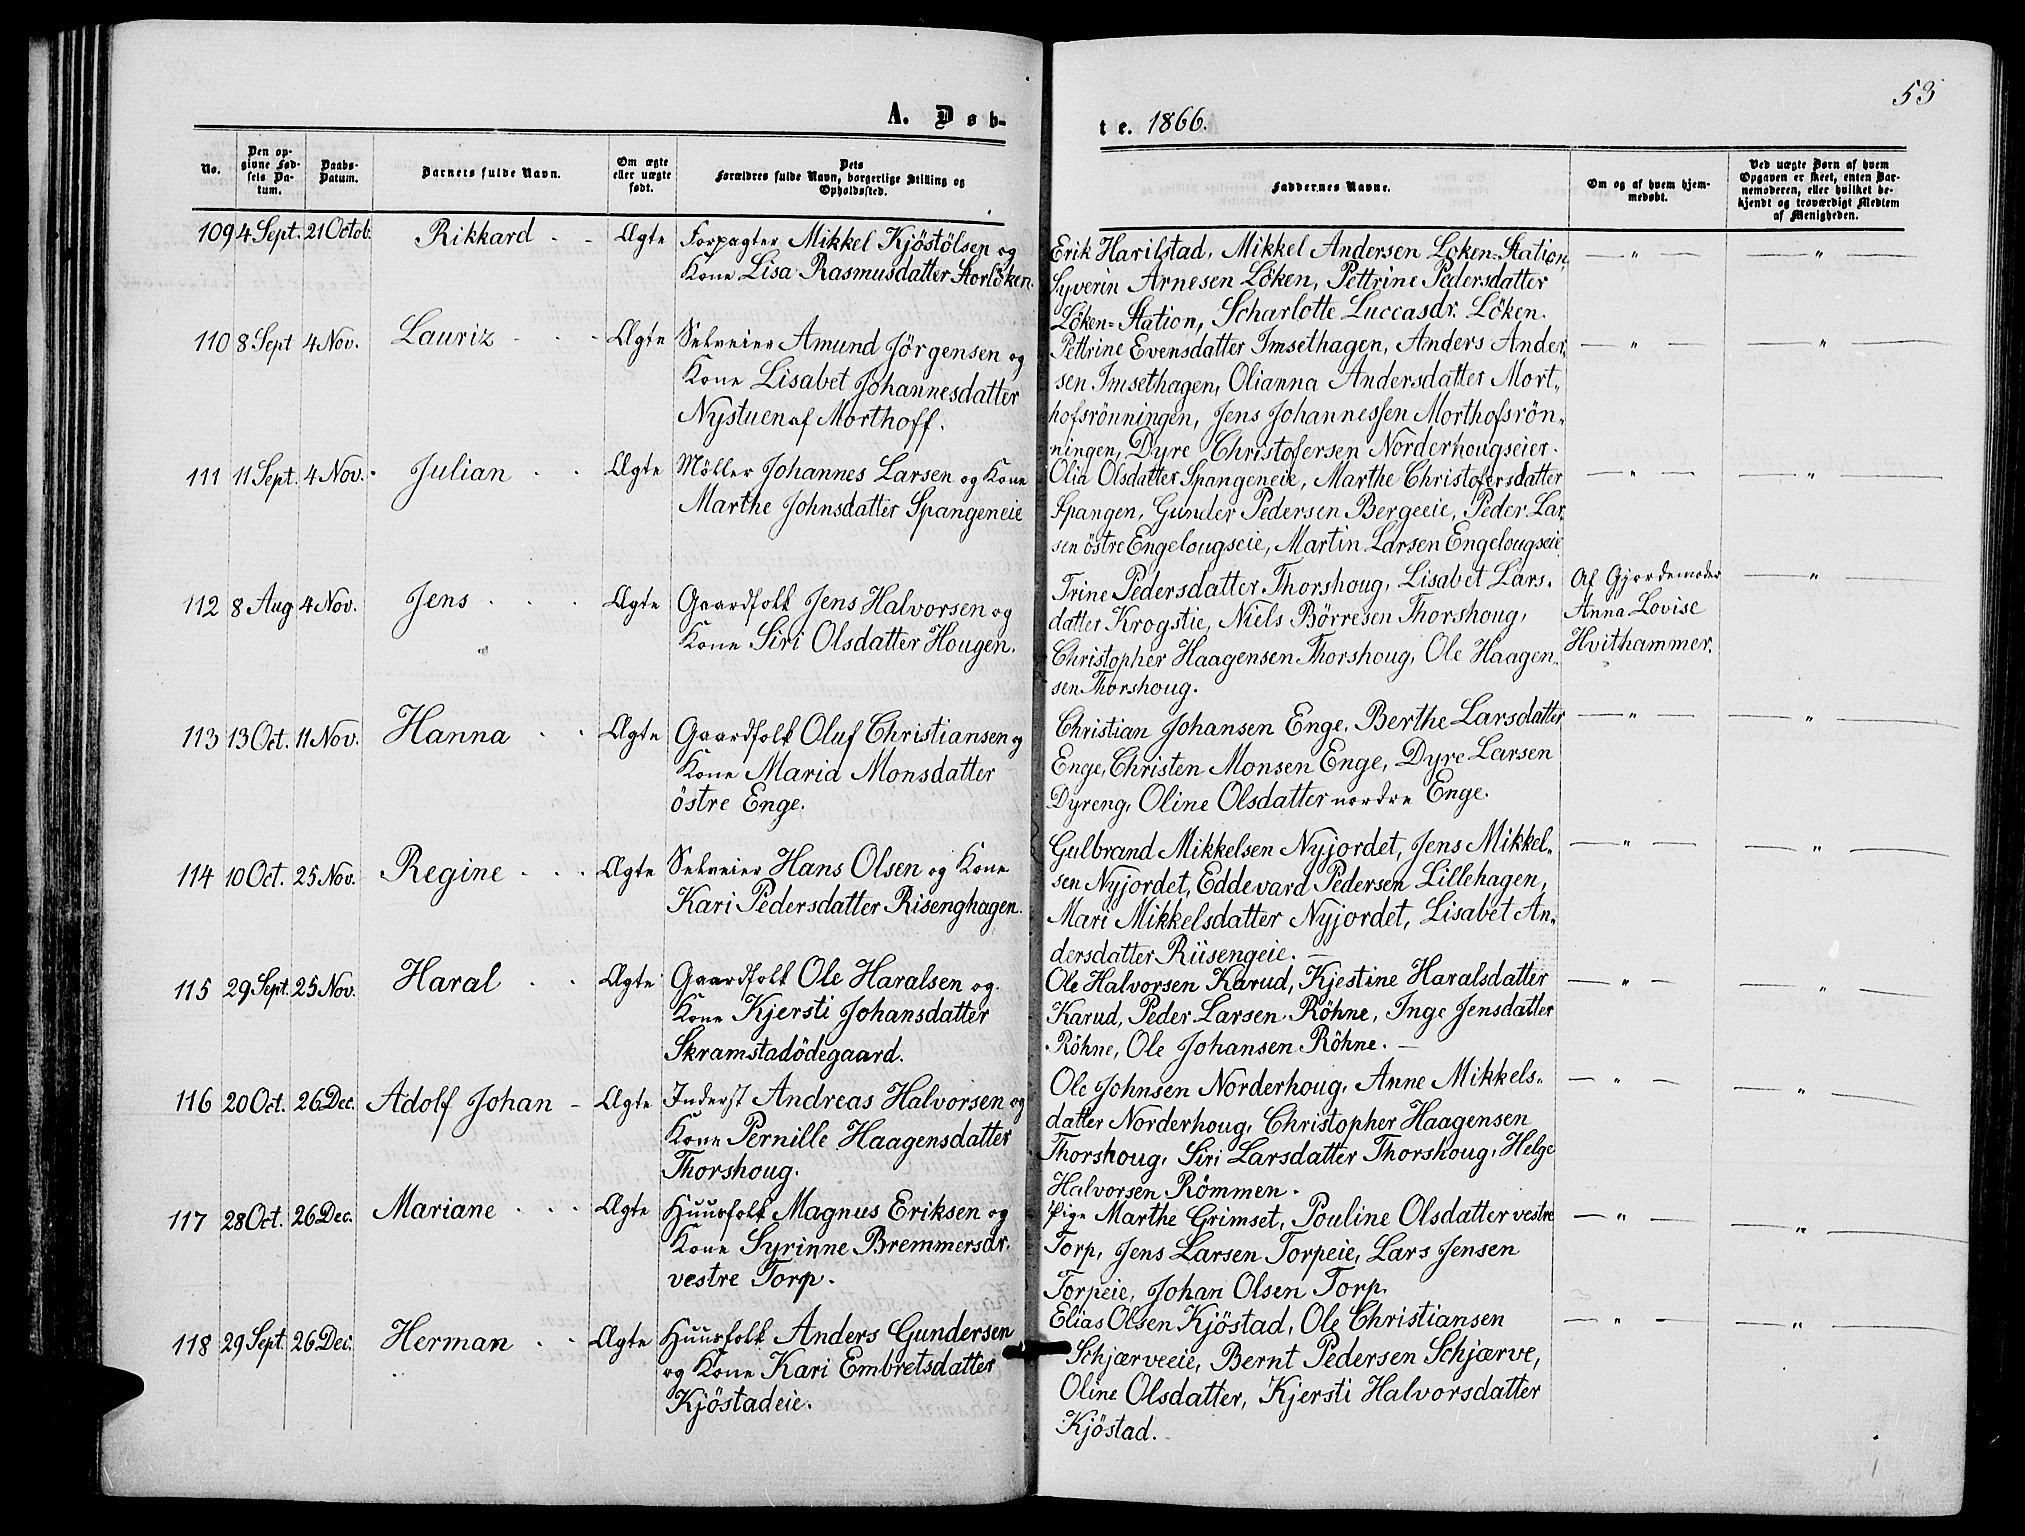 53
A. Døb-
te. 1866.
No.
Den op-
givne Fød-
sels Da-
tum.
Daabs-
Datum.
Barnets fulde Navn.
Om ægte
eller uægte
født.
Dets
Forældres fulde Navn, borgerlige Stilling og
Opholdssted.
Faddernes Navne.
Om og af hvem hjem-
medøbt.
Ved uægte Børn af hvem
Opgaven er skeet, enten Bar-
nemoderen, eller hvilket be-
kjendt og troværdigt Medlem
af Menigheden.
109 4 Sept. 21 Octob. Rikkard - - Ægte Forpagter Mikkel Kjöstölsen og
Kone Lisa Rasmusdatter Storlöken.
Erik Harilstad, Mikkel Andersen Loken-Station,
Syverin Arnesen Löken, Pettrine Pedersdatter
Löken-Station, Scharlotte Luccasdr. Löken.
— " — — " —
110 8 Sept 4 Nov. Lauriz - - - Ægte Selveier Amund Jörgensen og
Kone Lisabet Johannesdatter
Nystuen af Morthoff.
Pettrine Evensdatter Imsethagen, Anders Ander-
sen Imsethagen, Olianna Andersdatter Mort-
hofsrönningen, Jens Johannessen Morthofsrön-
ningen, Dyre Christofersen Norderhougseier.
— " — — " —
111 11 Sept. 4 Nov. Julian - - Ægte Möller Johannes Larsen og Kone
Marthe Johnsdatter Spangeneie
Olia Olsdatter Spangeneie, Marthe Christofersdatter
Spangen, Gunder Pedersen Bergeeie, Peder Lar-
sen östre Engelougseie, Martin Larsen Engelougseie
— " — — " —
112 8 Aug 4 Nov. Jens - - - Ægte Gaardfolk Jens Halvorsen og
Kone Siri Olsdatter Hougen.
Trine Pedersdatter Thorshoug, Lisabet Lars-
datter Krogstie, Niels Börresen Thorshoug,
Christopher Haagensen Thorshoug, Ole Haagen-
sen Thorshoug.
Af Gjordemoder
Anna Lovise
Hvithammer.
— " —
113 13 Oct. 11 Nov. Hanna - - Ægte Gaardfolk Oluf Christiansen og
Kone Maria Monsdatter
östre Enge.
Christian Johansen Enge, Berthe Larsdatter
Enge, Christen Monsen Enge, Dyre Larsen
Dyreng, Oline Olsdatter nordre Enge.
— " — — " —
114 10 Oct. 25 Nov. Regine - - - Ægte Selveier Hans Olsen og Kone
Kari Pedersdatter Risenghagen.
Gulbrand Mikkelsen Nyjordet, Jens Mikkel-
sen Nyjordet, Eddevard Pedersen Lillehagen,
Mari Mikkelsdatter Nyjordet, Lisabet An-
dersdatter Riisengeie. —
— " — — " —
115 29 Sept. 25 Nov. Haral - - Ægte Gaardfolk Ole Haralsen og
Kone Kjersti Johansdatter
Skramstadödegaard.
Ole Halvorsen Karud, Kjestine Haralsdatter
Karud, Peder Larsen Röhne, Inge Jensdatter
Röhne, Ole Johansen Röhne. —
— " — — " —
116 20 Oct. 26 Dec. Adolf Johan - Ægte Inderst Andreas Halvorsen og
Kone Pernille Haagensdatter
Thorshoug.
Ole Johnsen Norderhoug, Anne Mikkels-
datter Norderhoug, Christopher Haagensen
Thorshoug, Siri Larsdatter Thorshoug, Helge
Halvorsen Römmen.
— " — — " —
117 28 Oct. 26 Dec. Mariane - - - Ægte Huusfolk Magnus Eriksen og
Kone Syrinne Bremmersdr.
vestre Torp.
Pige Marthe Grimset, Pouline Olsdatter vestre
Torp, Jens Larsen Torpeie, Lars Jensen
Torpeie, Johan Olsen Torp.
— " — — " —
118 29 Sept. 26 Dec. Herman - - Ægte Huusfolk Anders Gundersen
og Kone Kari Embretsdatter
Kjöstadeie.
Elias Olsen Kjöstad, Ole Christiansen
Schjærveeie, Bernt Pedersen Schjærve,
Oline Olsdatter, Kjersti Halvorsdatter
Kjöstad.
— " — — " —